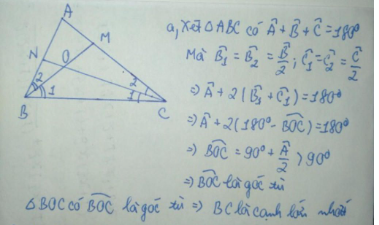 A
N
O
M
2
1
B
2
1
C
a, Xét ΔABC có Â + B̂ + Ĉ = 180°
Mà B̂₁ = B̂₂ = B̂/2 ; Ĉ₁ = Ĉ₂ = Ĉ/2
⇒ Â + 2(B̂₁ + Ĉ₁) = 180°
⇒ Â + 2(180° - BOC^) = 180°
⇒ BOC^ = 90° + Â/2 > 90°
⇒ BOC^ là góc tù
Δ BOC có BOC^ là góc tù ⇒ BC là cạnh lớn nhất